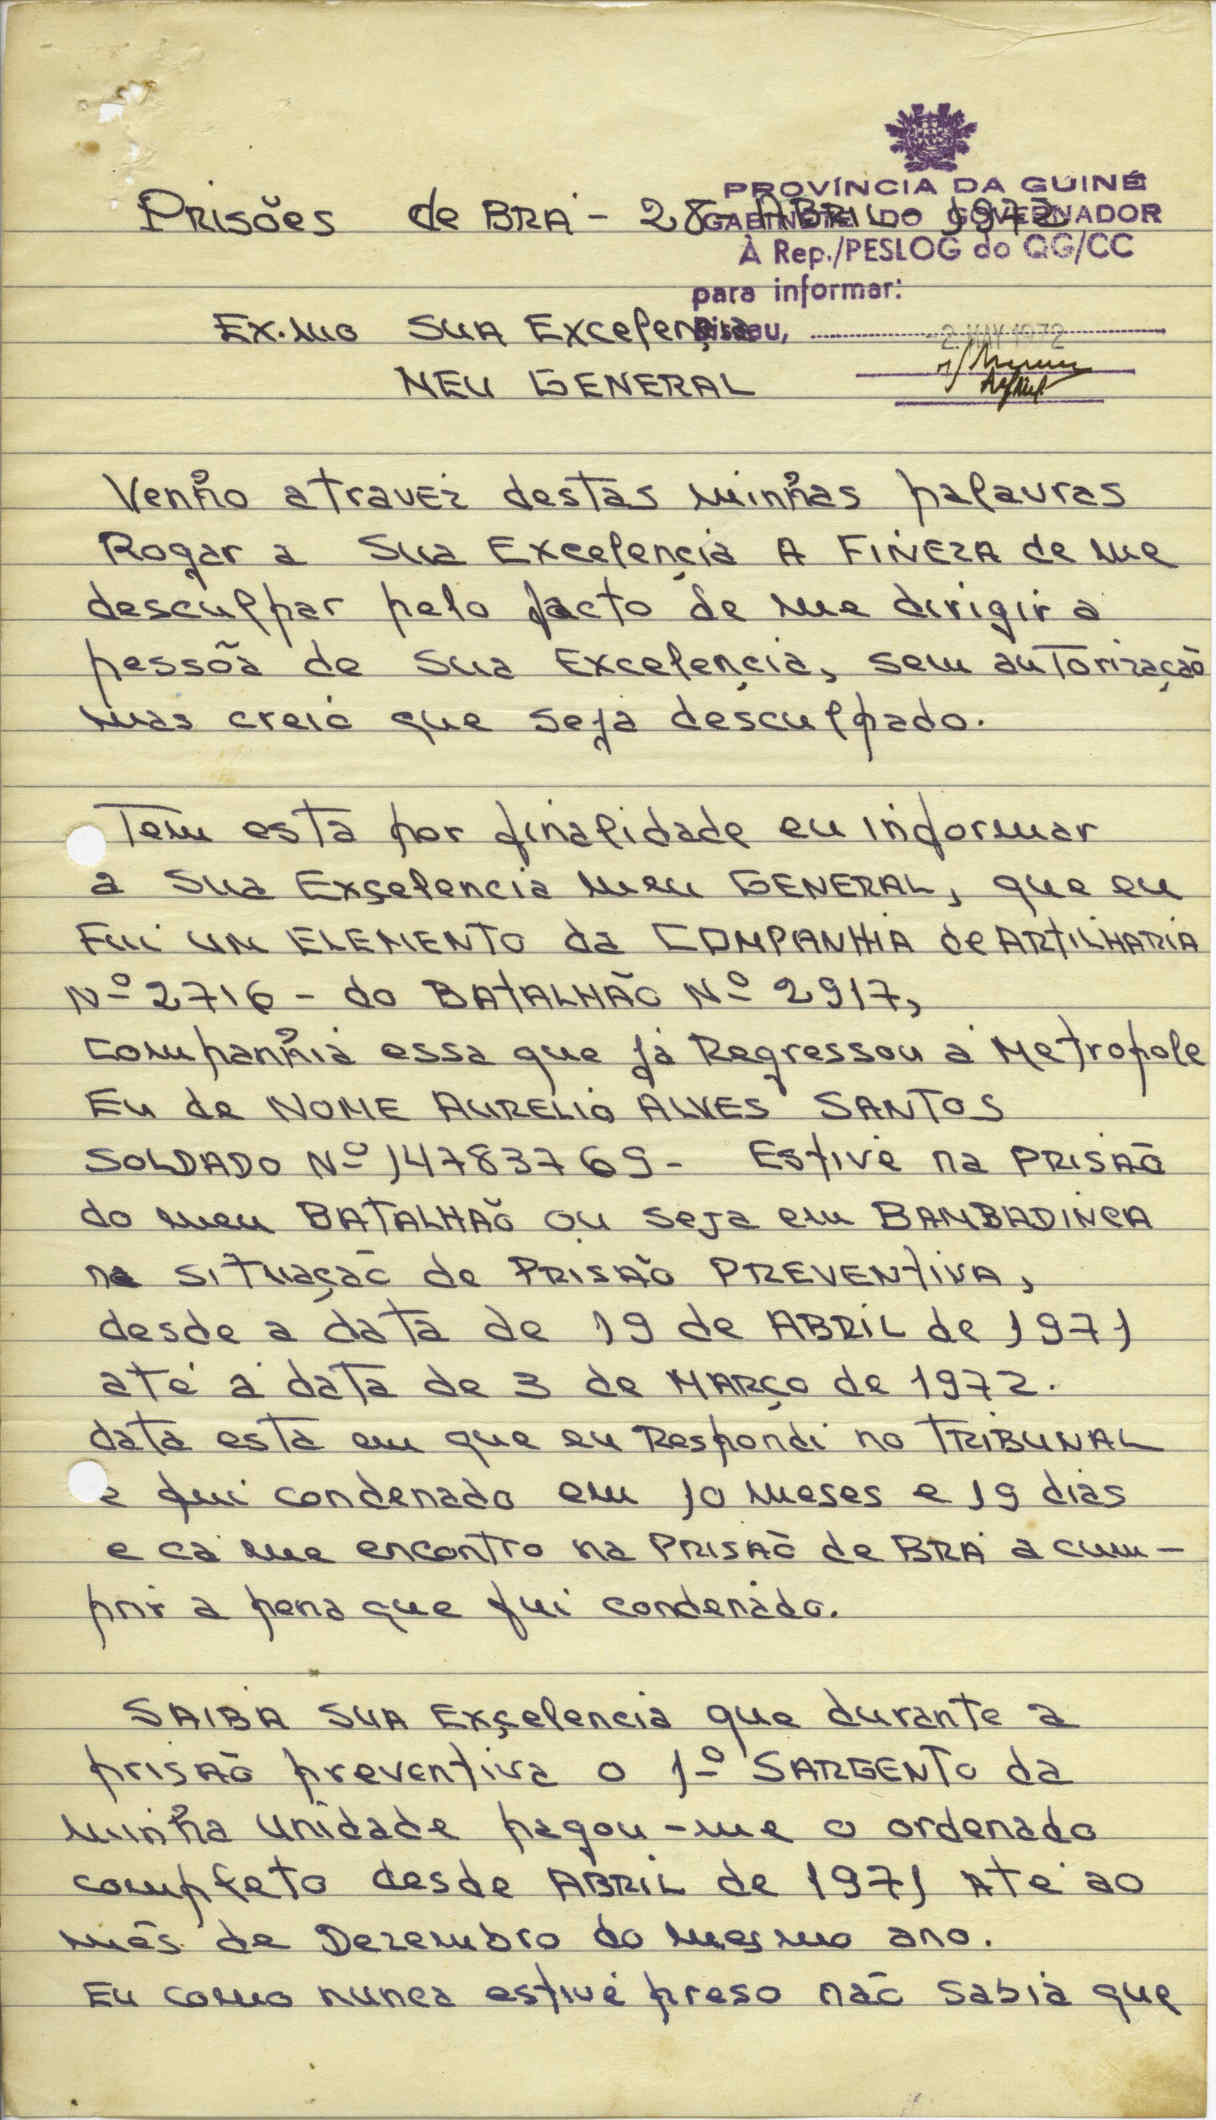 PROVÍNCIA DA GUINÉ
Prisões de BRÁ - 28 - ABRIL - 1972
GABINETE DO GOVERNADOR
À Rep./PESLOG do QG/CC
para informar:
Ex.mo SUA Excelençia
Bissau, 2 MAY 1972
MEU GENERAL
Venho atravez destas minhas palavras
Rogar a Sua Excelençia A FINEZA de me
desculpar pelo facto de me dirigir a
pessõa de Sua Excelençia, sem autorização
mas creio que seja desculpado.
Tem esta por finalidade eu informar
a Sua Exçelencia meu GENERAL, que eu
Fui UM ELEMENTO da COMPANHIA de ARTILHARIA
Nº 2716 - do BATALHÃO Nº 2917,
Companhia essa que já Regressou á Metropole
Eu de NOME AURELIO ALVES SANTOS
SOLDADO Nº 14783769 - Estive na PRISÃO
do meu BATALHÃO ou seja em BAMBADINCA
na situação de PRISÃO PREVENTIVA,
desde a data de 19 de ABRIL de 1971
até á data de 3 de MARÇO de 1972.
data esta em que eu Respondi no TRIBUNAL
e fui condenado em 10 meses e 19 dias
e cá me encontro na PRISÃO de BRÁ a cum-
prir a pena que fui condenado.
SAIBA SUA Exçelencia que durante a
prisão preventiva o 1º SARGENTO da
minha unidade pagou-me o ordenado
completo desde ABRIL de 1971 Até ao
mês de Dezembro do mesmo ano.
Eu como nunca estive preso não sabia que